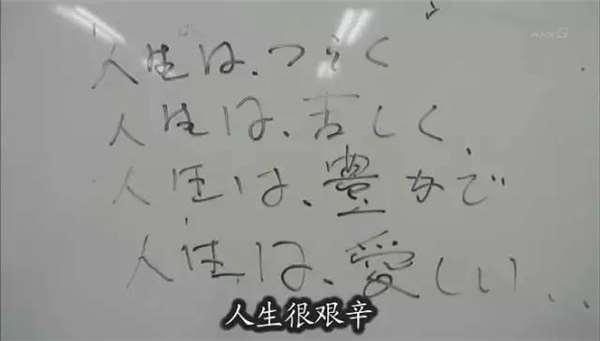 人生は、つらく
人生は、苦しく、
人生は、豊かで
人生は、愛しい...
人生很艰辛